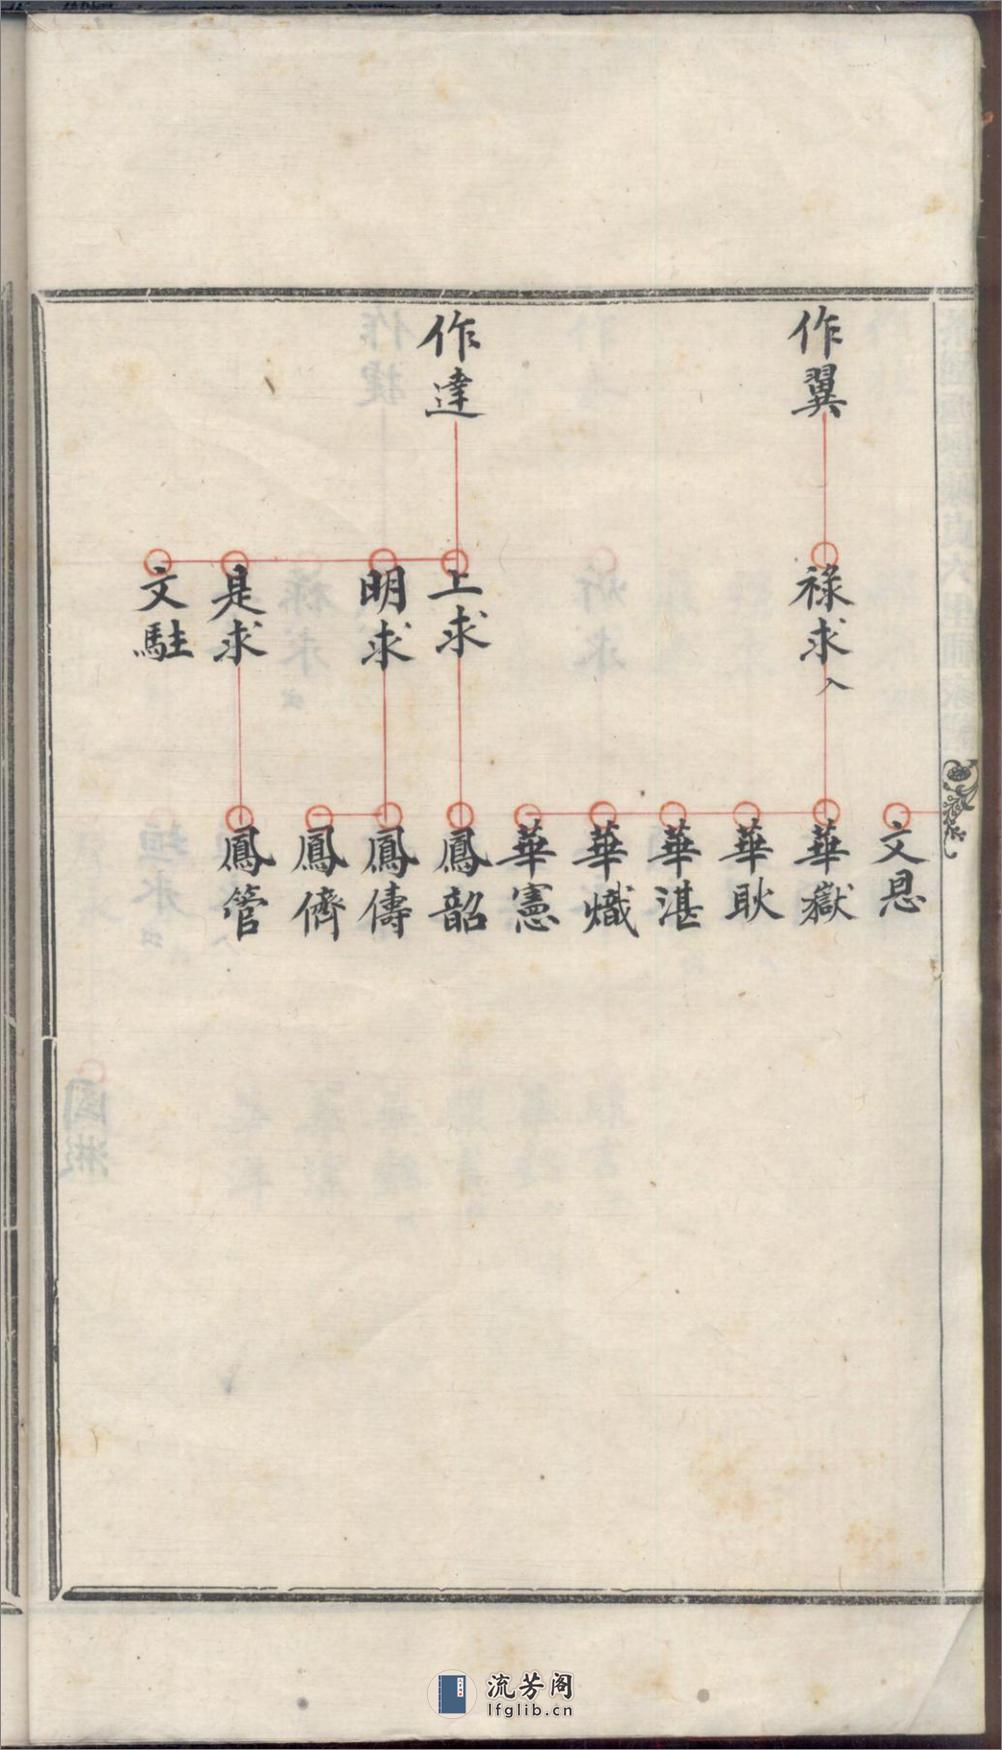 作翼
作達
祿求入
上求
明求
是求
文駐
文恩
華嶽
華耿
華湛
華熾
華憲
鳳韶
鳳儔
鳳儕
鳳管
流芳阁
lfglib.cn